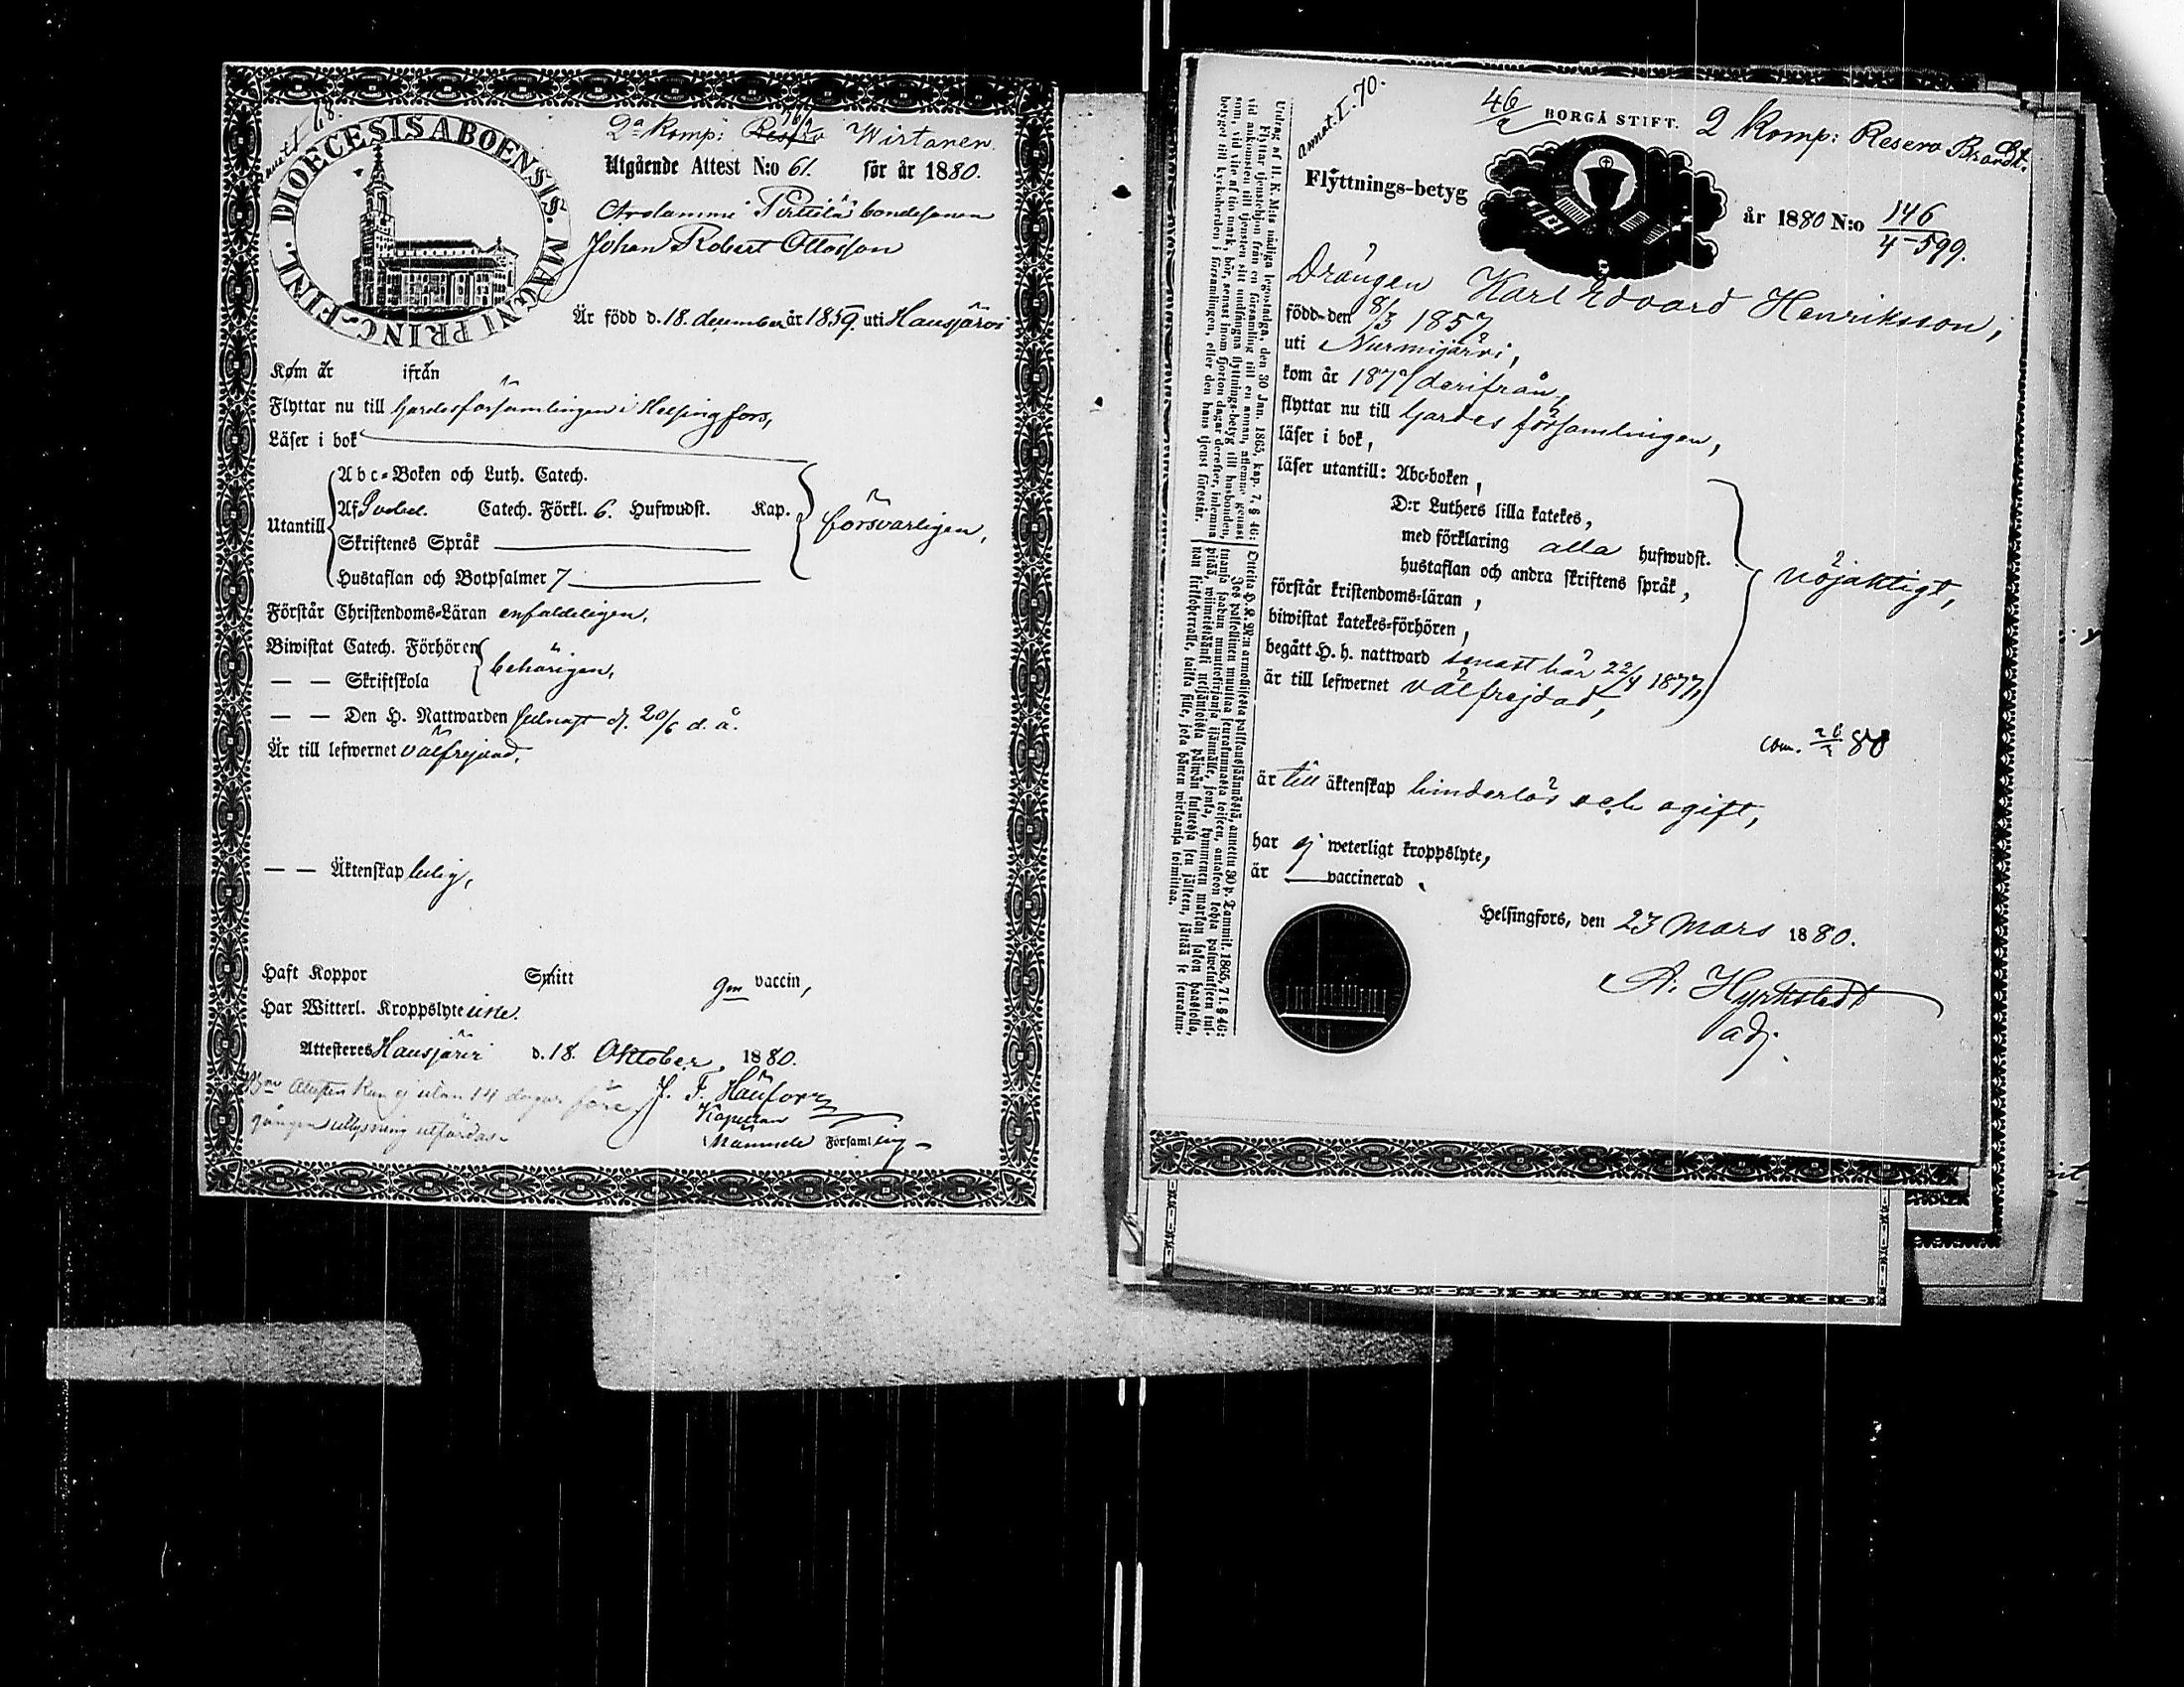 annot I 68.
DIOECESIS ABOENSIS. MAGNI PRINC. FINL.
76/2
2a Komp: Reserv Wirtanen.
Utgående Attest N:o 61. för år 1880.
Arolammi Pirttilä bondesonen
Johan Robert Ottosson
Är född d. 18. december år 1859. uti Hausjärvi
Kom år ifrån
Flyttar nu till Gardesförsamlingen i Helsingfors,
Läser i bok
Utantill
Abc-Boken och Luth. Catech.
Af Svebel. Catech. Förkl. 6. Hufwudst. Kap.
Skriftenes Språk
Hustaflan och Botpsalmer 7
försvarligen,
Förstår Christendoms-Läran enfaldeligen,
Biwistat Catech. Förhören
— — Skriftskola
behörigen,
— — Den H. Nattwarden senast d. 20/6 d. å.
Är till lefwernet välfrejdad,
— — Äktenskap ledig,
Haft Koppor Smitt gm vaccin,
Har Witterl. Kroppslyte inte.
Attesteres Hausjärvi d. 18. Oktober, 1880.
attesten kan ej utan 14 dagar före
gången utlysning utfärdas
J. F.
Kapellan
Församling

annot. I. 70.
46/2
BORGÅ STIFT.
2 Komp: Reserv Brandt.
Flyttnings-betyg
år 1880 N:o 146
4-599.
Drängen Karl Edvard Henriksson,
född den 8/3 1857
uti Nurmijärvi,
kom år 1877 derifrån,
flyttar nu till Gardes församlingen,
läser i bok,
läser utantill: Abc-boken,
D:r Luthers lilla katekes,
med förklaring alla hufwudst.
hustaflan och andra skriftens språk,
förstår kristendoms-läran,
biwistat katekes-förhören,
nöjaktigt,
begått H. h. nattward senast här 22/4 1877,
är till lefwernet välfrejdad,
com. 80
är till äktenskap hinderlös och ogift,
har ej weterligt kroppslyte,
är vaccinerad
Helsingfors, den 23 Mars 1880.
A. Hyrkstedt
adj.
Utdrag af H. K. M:ts nådiga legostadga, den 30 Jan. 1865, kap. 7, § 46:
Flyttar tjenstehjon från en församling till en annan, aflemne genast
vid ankomsten till tjensten sitt undfångna flyttnings-betyg till husbonden,
som, vid vite af tio mark, bör, senast inom fjorton dagar derefter, inlemna
betyget till kyrkoherden i församlingen, eller den hans tjenst förestår.